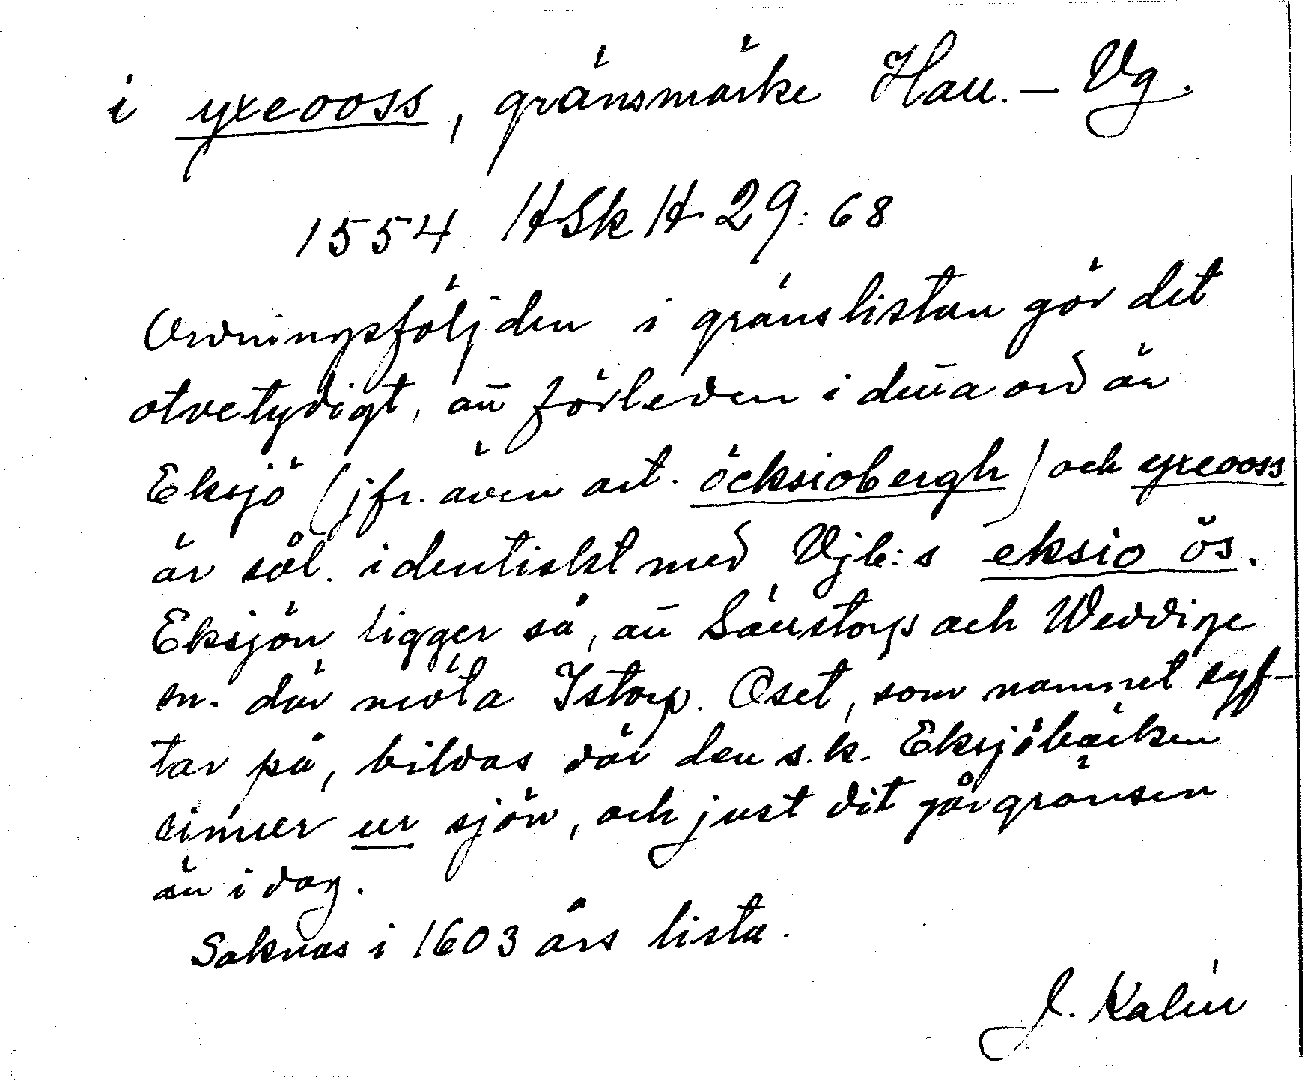 i yxeooss, gränsmärke Hall. – Vg.
1554 HSkH 29:68
Ordningsföljden i gränslistan gör det
otvetydigt, att förleden i detta ord är
Eksjö (jfr. även art. öcksiobergh) och yxeooss
är sål. identiskt med Vjb:s eksio ös.
Eksjön ligger så, att och Weddige
sn. där möta Istorp. Oset, som namnet syf-
tar på, bildas där den s.k. Eksjöbäcken
rinner ur sjön, och just dit går gränsen
än i dag.
Saknas i 1603 års lista.
J. Kalén